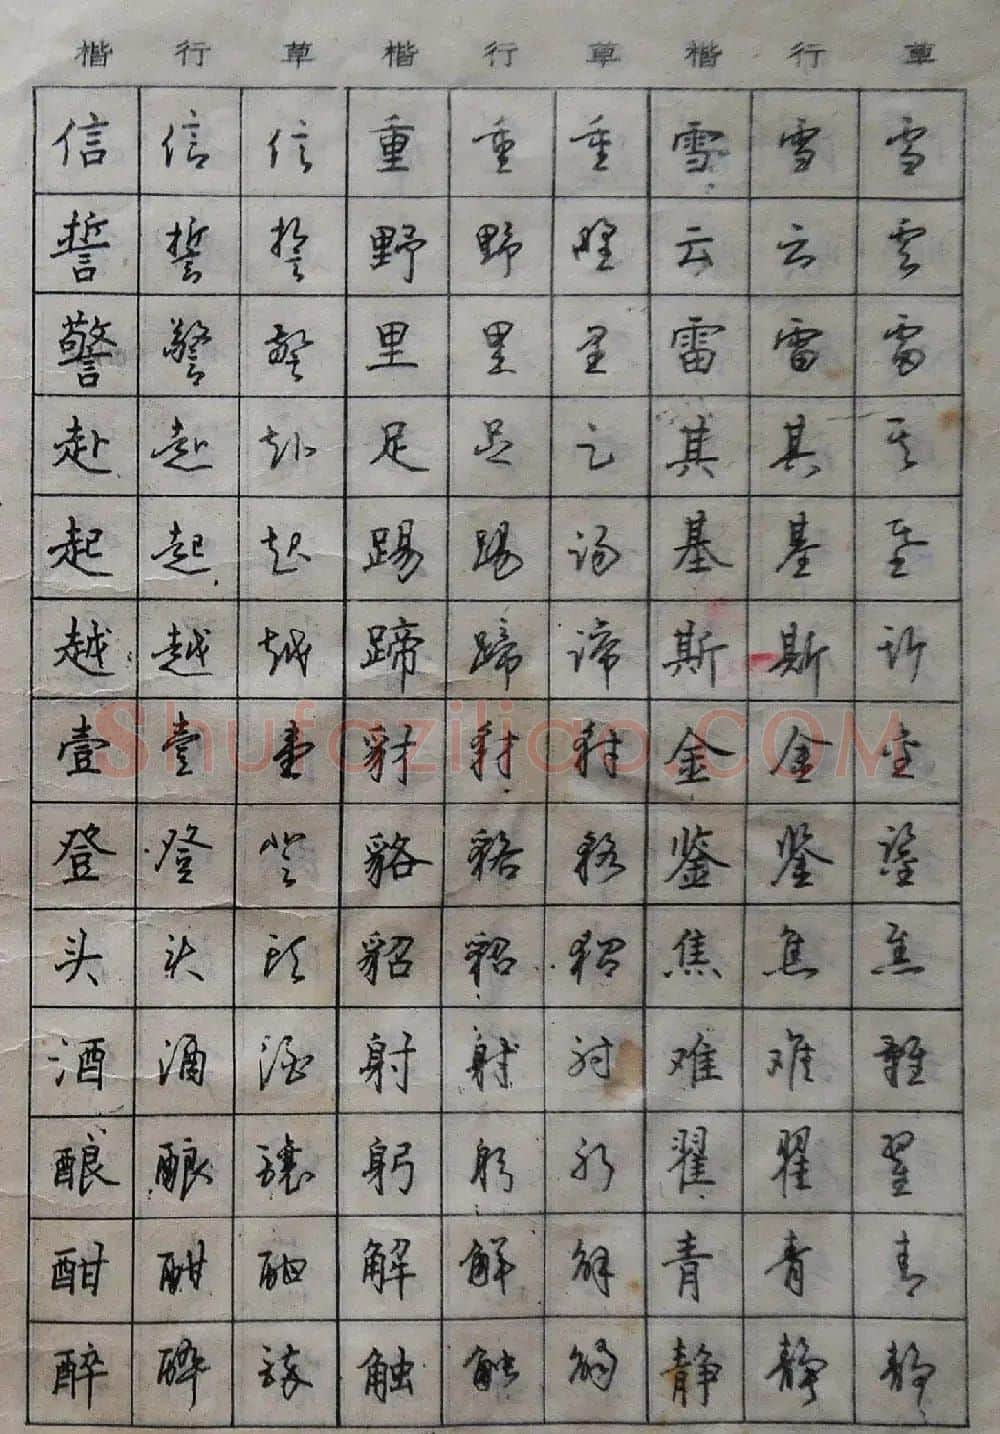 楷 行 草 楷 行 草 楷 行 草
信 信 信 重 重 重 雪 雪 雪
誓 誓 誓 野 野 野 云 云 雲
警 警 警 里 里 里 雷 雷 雷
赴 赴 赴 足 足 足 其 其 其
起 起 起 踢 踢 踢 基 基 基
越 越 越 蹄 蹄 蹄 斯 斯 斯
壹 壹 壹 豺 豺 豺 金 金 金
Shufaziliao.COM
登 登 登 貉 貉 貉 鉴 鉴 鉴
头 头 頭 貂 貂 貂 焦 焦 焦
酒 酒 酒 射 射 射 难 难 難
酿 酿 釀 躬 躬 躬 翟 翟 翟
酣 酣 酣 解 解 解 青 青 青
醉 醉 醉 触 触 觸 静 静 静